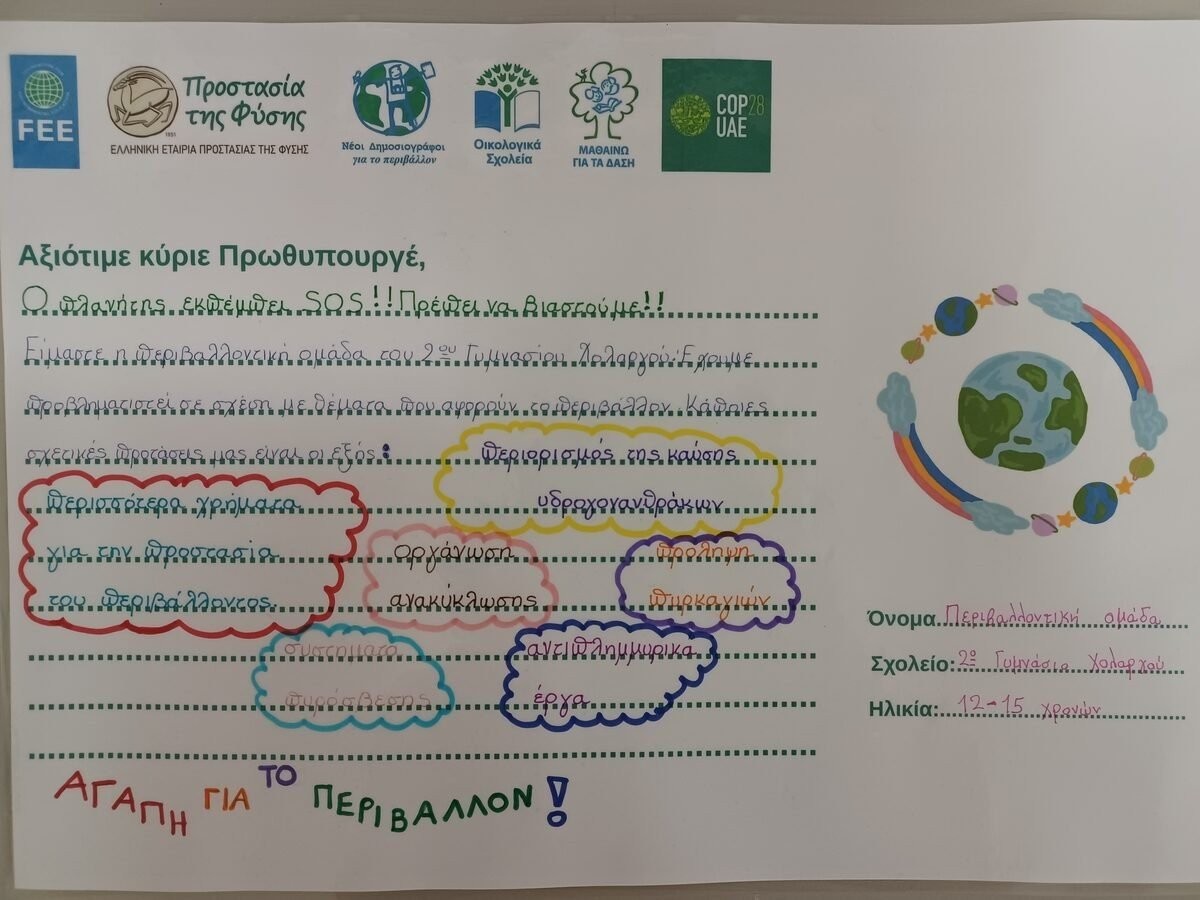 FEE
Προστασία
της Φύσης
1951
ΕΛΛΗΝΙΚΗ ΕΤΑΙΡΙΑ ΠΡΟΣΤΑΣΙΑΣ ΤΗΣ ΦΥΣΗΣ
Νέοι Δημοσιογράφοι
για το περιβάλλον
Οικολογικά
Σχολεία
ΜΑΘΑΙΝΩ
ΓΙΑ ΤΑ ΔΑΣΗ
COP28
UAE
Αξιότιμε κύριε Πρωθυπουργέ,
Ο πλανήτης εκπέμπει SOS!! Πρέπει να βιαστούμε!!
Είμαστε η περιβαλλοντική ομάδα του 2ου Γυμνασίου Χολαργού. Έχουμε
προβληματιστεί σε σχέση με θέματα που αφορούν το περιβάλλον. Κάποιες
σχετικές προτάσεις μας είναι οι εξής:
περιορισμός της καύσης
υδρογονανθράκων
περισσότερα χρήματα
για την προστασία
του περιβάλλοντος.
οργάνωση
ανακύκλωσης
πρόληψη
πυρκαγιών
συστήματα
πυρόσβεσης
αντιπλημμυρικα
έργα
ΑΓΑΠΗ ΓΙΑ ΤΟ ΠΕΡΙΒΑΛΛΟΝ!
Όνομα Περιβαλλοντική ομάδα
Σχολείο: 2ο Γυμνάσιο Χολαργού
Ηλικία: 12-15 χρονών